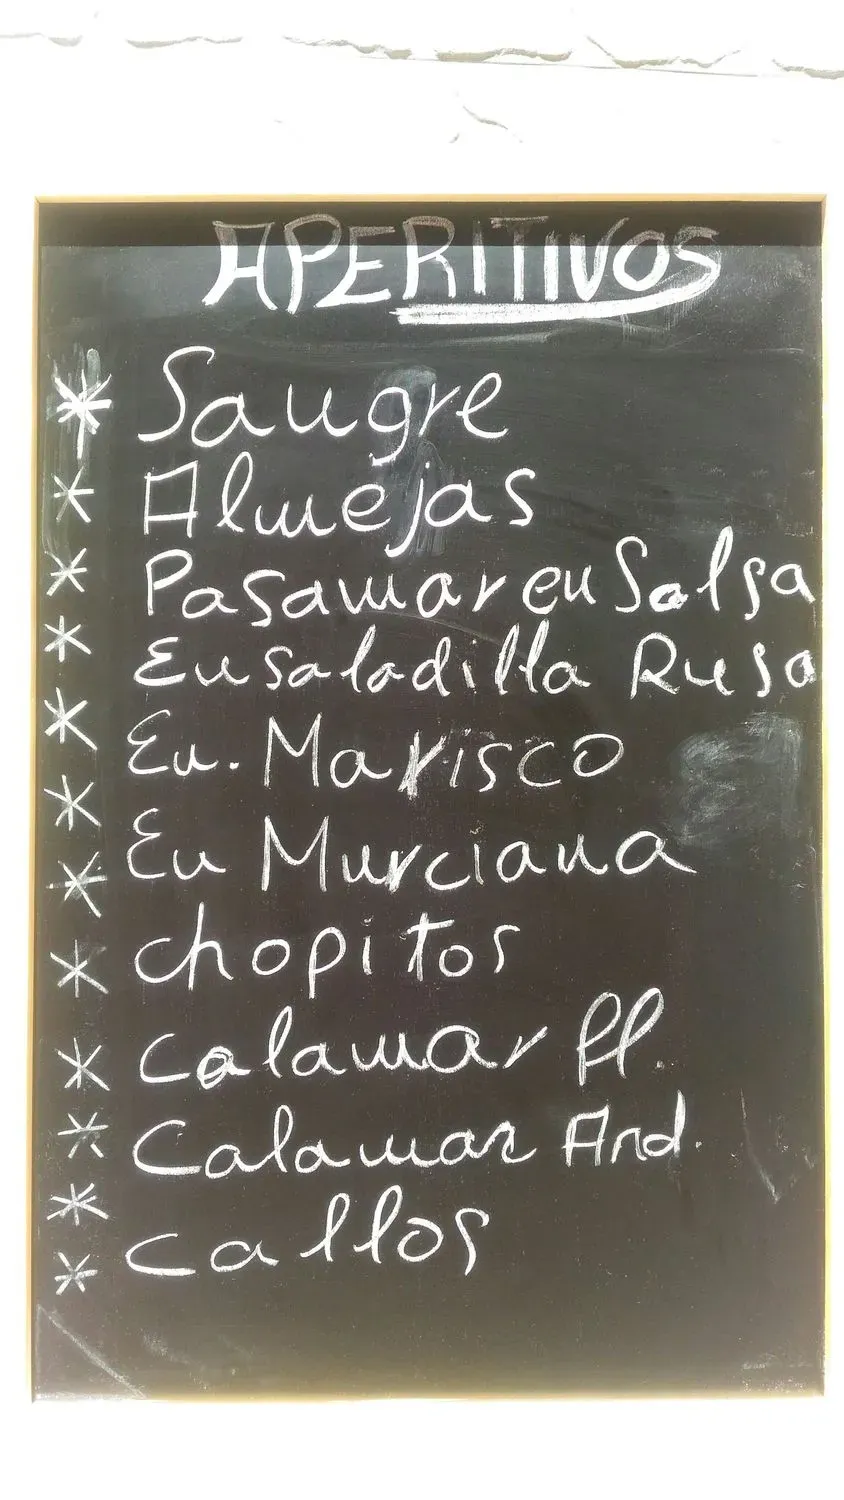 APERITIVOS
* Sangre
* Almejas
* Pasamar en Salsa
* Ensaladilla Rusa
* En. Marisco
* En Murciana
* chopitos
* Calamar Pl.
* Calamar And.
* Callos
*